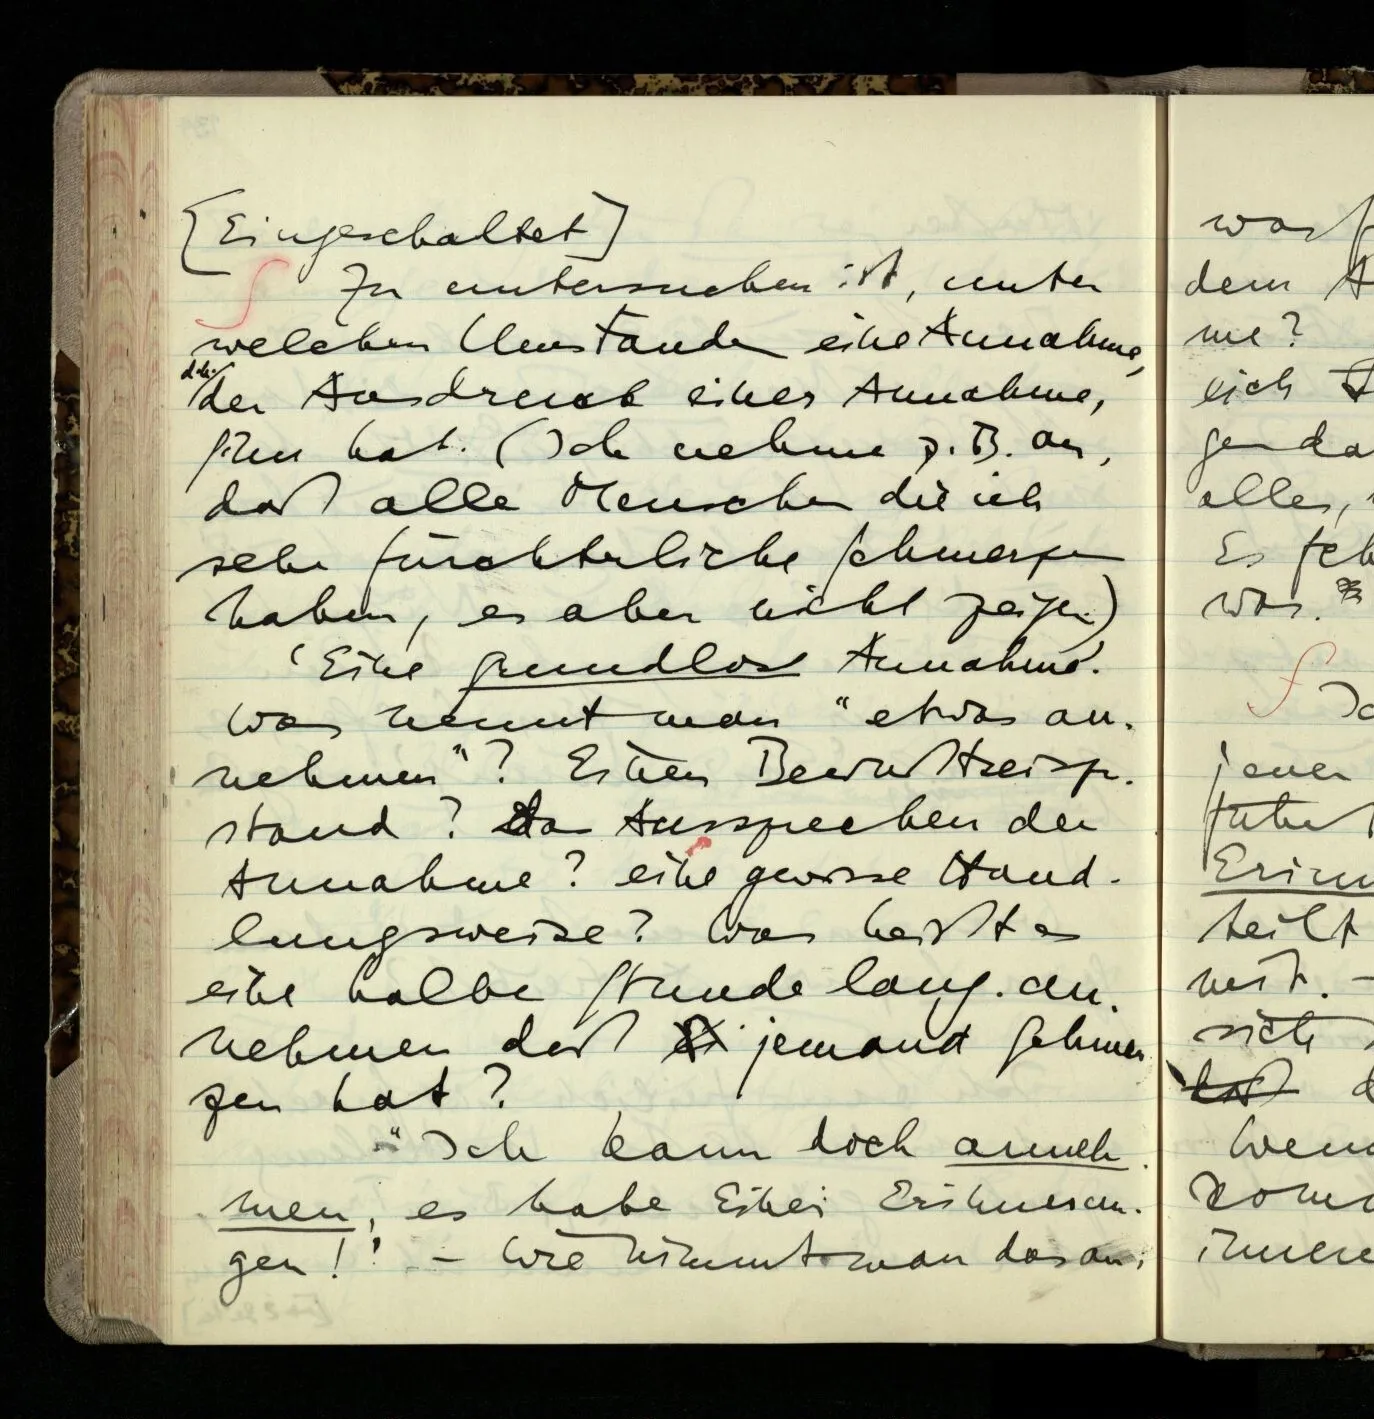 [Eingeschaltet]
∫ Zu untersuchen ist, unter
welchen Umständen eine Annahme,
d.h.
der Ausdruck einer Annahme,
Sinn hat. (Ich nehme z.B. an,
daß alle Menschen die ich
sehe fürchterliche Schmerzen
haben, es aber nicht zeigen.)
Eine grundlose Annahme.
Was nennt man "etwas an-
nehmen"? Einen Bewußtseinsz.-
stand? Das Aussprechen der
Annahme? eine gewisse Hand-
lungsweise? Was heißt es
eine halbe Stunde lang an-
nehmen daß jemand Schmer-
zen hat?
"Ich kann doch anneh-
men, es habe Einer Erinnerun-
gen!" – Wie nimmt man das an;
was
dem
me?
sich
alles,
Es
was.
∫
jener
teilt
sich